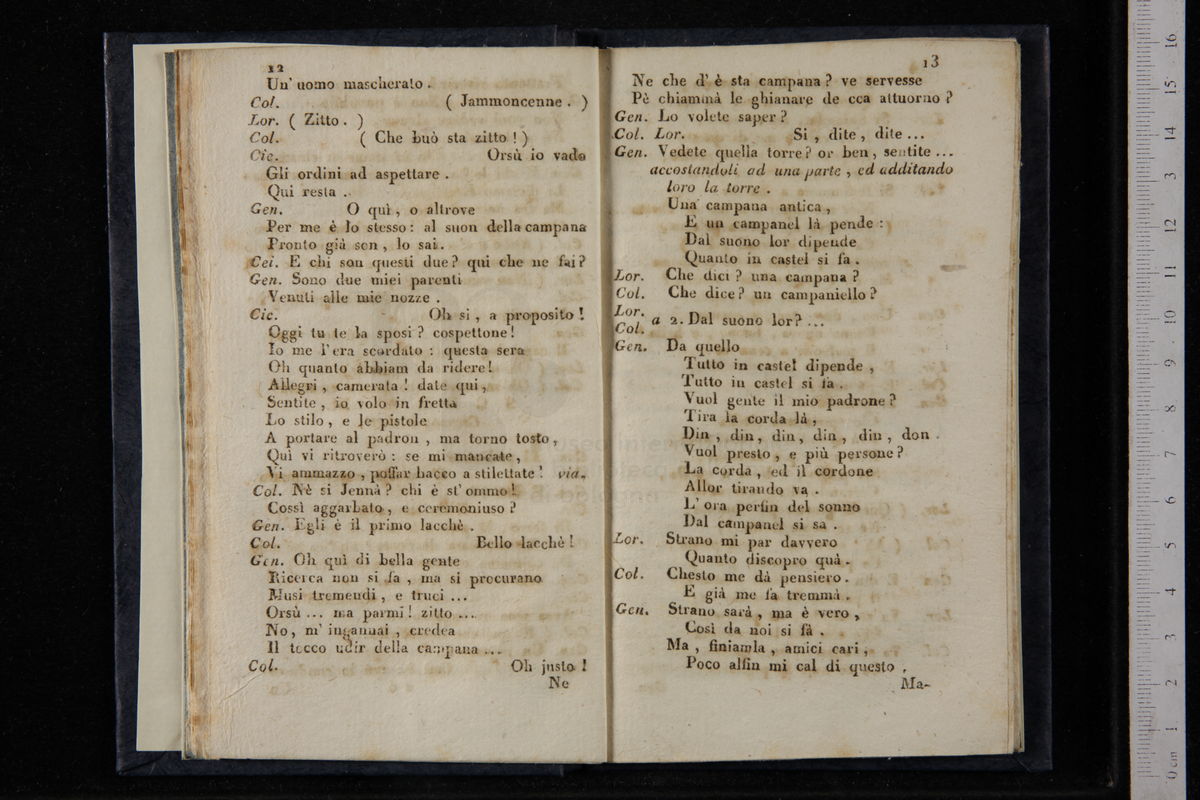 12
Un' uomo mascherato .
Col. ( Jammoncenne . )
Lor. ( Zitto . )
Col. ( Che buò sta zitto ! )
Cic. Orsù io vado
Gli ordini ad aspettare .
Qui resta .
Gen. O quì , o altrove
Per me è lo stesso : al suon della campana
Pronto già son , lo sai .
Cei. E chi son questi due ? qui che ne fai ?
Gen. Sono due miei parenti
Venuti alle mie nozze .
Cic. Oh si , a proposito !
Oggi tu te la sposi ? cospettone !
Io me l'era scordato : questa sera
Oh quanto abbiam da ridere !
Allegri , camerata ! date qui ,
Sentite , io volo in fretta
Lo stilo , e le pistole
A portare al padron , ma torno tosto ,
Quì vi ritroverò : se mi mancate ,
Vi ammazzo , poffar bacco a stilettate ! via.
Col. Nè si Jennà ? chi è st' ommo !
Cossì aggarbato , e ceremoniuso ?
Gen. Egli è il primo lacchè .
Col. Bello lacchè !
Gen. Oh quì di bella gente
Ricerca non si fa , ma si procurano
Musi tremendi , e truci ...
Orsù ... ma parmi ! zitto ...
No , m' ingannai , credea
Il tocco udir della campana ...
Col. Oh justo !
Ne
13
Ne che d' è sta campana ? ve servesse
Pè chiammà le ghianare de cca attuorno ?
Gen. Lo volete saper ?
Col. Lor. Si , dite , dite ...
Gen. Vedete quella torre ? or ben , sentite ...
accostandoli ad una parte , ed additando
loro la torre .
Una campana antica ,
E un campanel là pende :
Dal suono lor dipende
Quanto in castel si fa .
Lor. Che dici ? una campana ?
Col. Che dice ? un campaniello ?
Lor.
Col. a 2. Dal suono lor ? ...
Gen. Da quello
Tutto in castel dipende ,
Tutto in castel si fa .
Vuol gente il mio padrone ?
Tira la corda là ,
Din , din , din , din , din , don .
Vuol presto , e più persone ?
La corda , ed il cordone
Allor tirando va .
L' ora perfin del sonno
Dal campanel si sa .
Lor. Strano mi par davvero
Quanto discopro quà .
Col. Chesto me dà pensiero .
E già me fa tremmà .
Gen. Strano sarà , ma è vero ,
Così da noi si fà .
Ma , finiamla , amici cari ,
Poco alfin mi cal di questo ,
Ma-